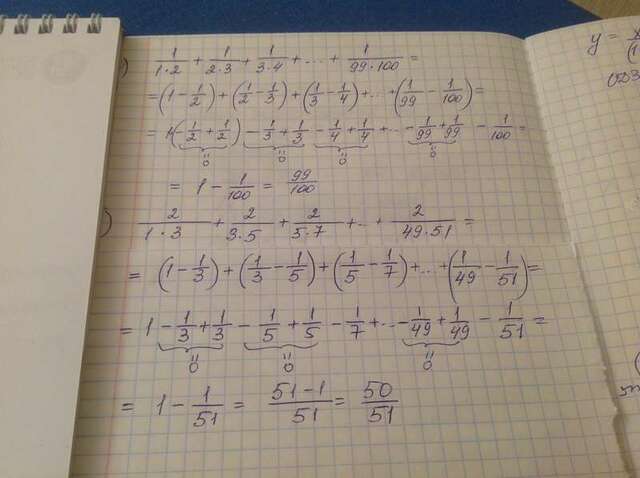 ) 1/(1·2) + 1/(2·3) + 1/(3·4) + ... + 1/(99·100) =
= (1 - 1/2) + (1/2 - 1/3) + (1/3 - 1/4) + ... + (1/99 - 1/100) =
= 1(- 1/2 + 1/2) - 1/3 + 1/3 - 1/4 + 1/4 + ... - 1/99 + 1/99 - 1/100 =
= 0 = 0 = 0 = 0
= 1 - 1/100 = 99/100
) 2/(1·3) + 2/(3·5) + 2/(5·7) + ... + 2/(49·51) =
= (1 - 1/3) + (1/3 - 1/5) + (1/5 - 1/7) + ... + (1/49 - 1/51) =
= 1 - 1/3 + 1/3 - 1/5 + 1/5 - 1/7 + ... - 1/49 + 1/49 - 1/51 =
= 0 = 0 = 0
= 1 - 1/51 = (51-1)/51 = 50/51
y =